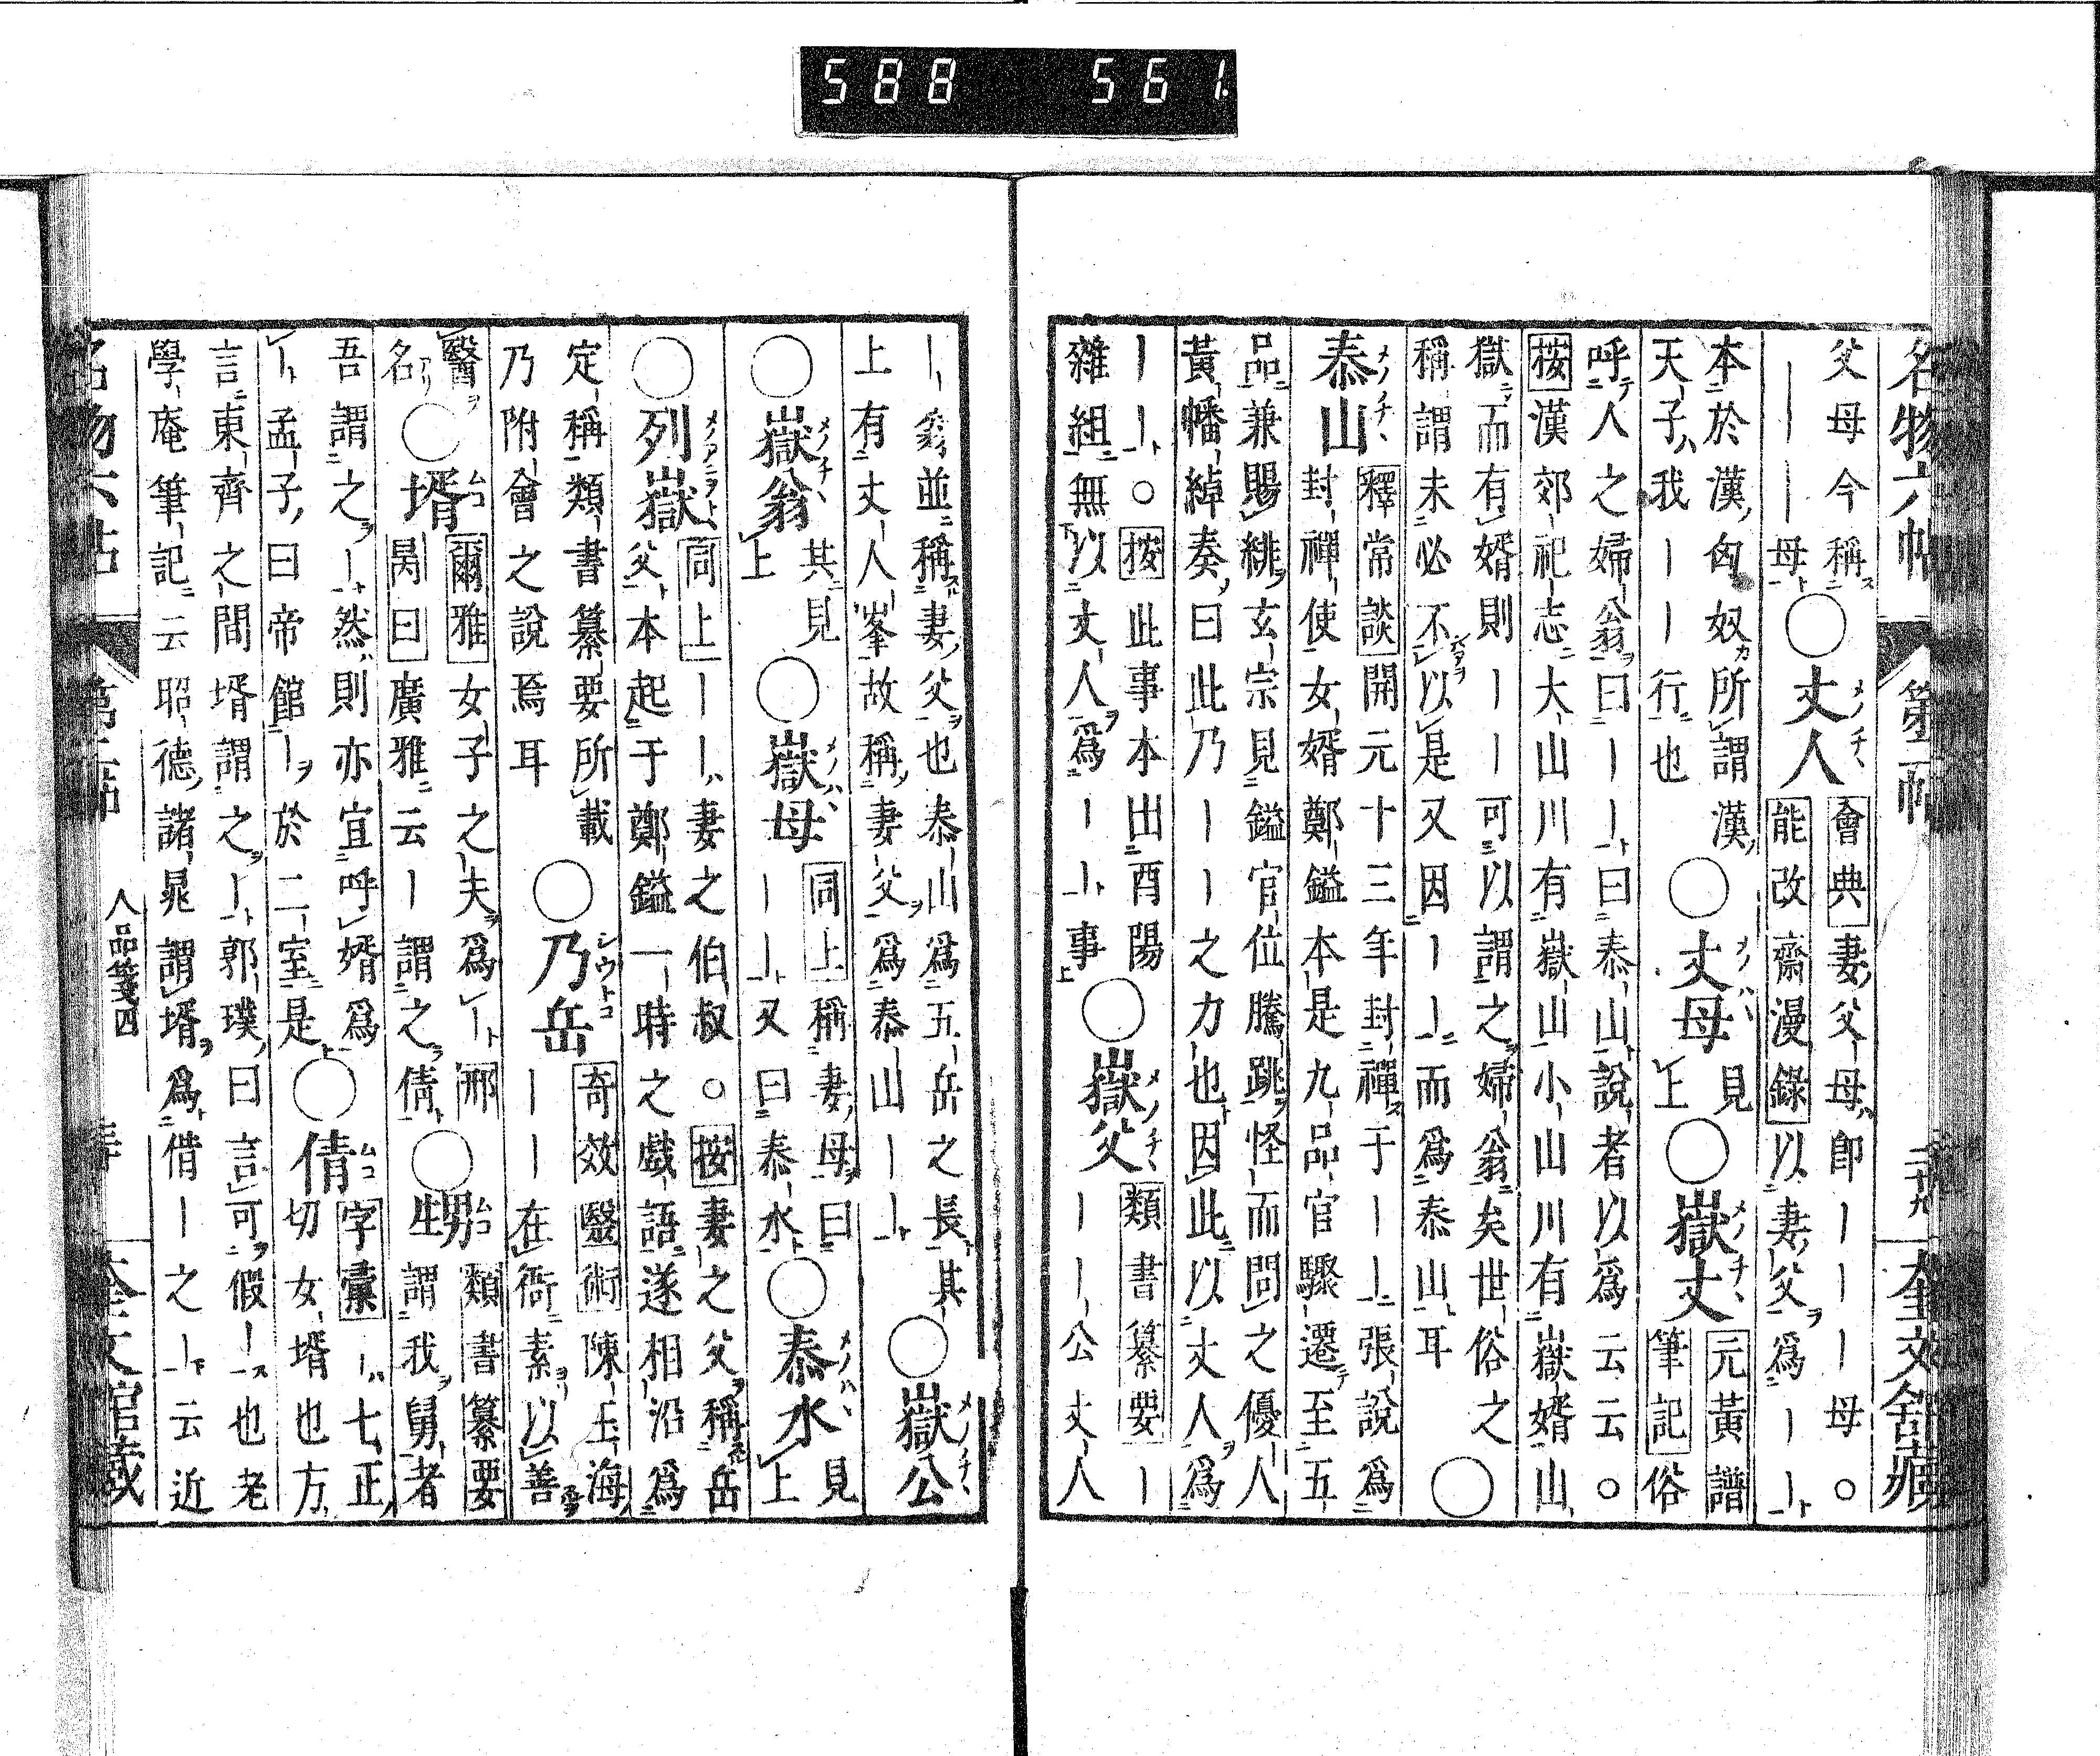 名物六帖 第二帖 二十九 奎文舘藏
父母今稱
ーーー母
○丈人
會典妻父母即ーーー母。
能改齋漫錄以妻父爲ーー
本於漢匈奴所謂漢
天子我ーー行也
○丈母
見
上
○嶽丈
元黃譜
筆記俗
呼人之婦翁曰ーー曰泰山說者以爲云云。
按漢郊祀志大山川有嶽山小山川有嶽婿山
嶽而有婿則ーー可以謂之婦翁矣世俗之
稱謂未必不以是又因ーー而爲泰山耳
○泰山
釋常談開元十三年封禪于ーー張說爲
封禪使女婿鄭鎰本是九品官驟遷至五
品兼賜緋玄宗見鎰官位騰跳怪而問之優人
黃幡綽奏曰此乃ーー之力也因此以丈人爲
ーー。按此事本出酉陽
雜組無以丈人爲ーー事
○嶽父
類書纂要ー
ーー公丈人
ー翁並稱妻父也泰山爲五岳之長其
上有丈人峯故稱妻父爲泰山ーー
○嶽公
○嶽翁
共見
上
○嶽母
同上稱妻母曰
ーー又曰泰水
○泰水
見
上
○列嶽
同上ーー妻之伯叔。按妻之父稱岳
父本起于鄭鎰一時之戲語遂相沿爲
定稱類書纂要所載
乃附會之說焉耳
○乃岳
奇效醫術陳玉海
ーー在衙素以善
醫
名
○壻
爾雅女子之夫爲ー邢
昺曰廣雅云ー謂之倩
○甥
類書纂要
謂我舅者
吾謂之ー然則亦宜呼婿爲
ー孟子曰帝館ー於二室是
○倩
字彙ー七正
切女壻也方
言東齊之間壻謂之ー郭璞曰言可假ー也老
學庵筆記云昭德諸晁謂壻爲借ー之ー云近
名物六帖 第二帖 人品箋四 奎文館藏
588 561